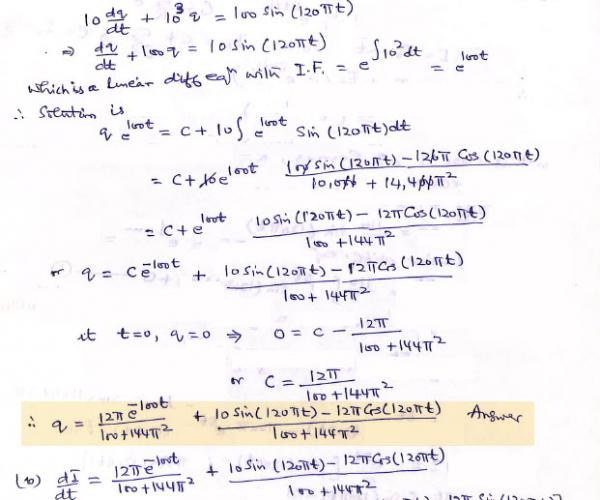 10 dq/dt + 10³ q = 100 sin (120πt)
⇒ dq/dt + 100q = 10 sin (120πt)
which is a linear diff eqⁿ with I.F. = e^∫10²dt = e^100t
∴ Solution is
q e^100t = C + 10∫ e^100t sin (120πt)dt
= C + 10e^100t (100 sin (120πt) - 120π Cos (120πt)) / (10,000 + 14,400π²)
= C + e^100t (10 sin (120πt) - 12π Cos (120πt)) / (100 + 144π²)
or q = Ce^-100t + (10 sin (120πt) - 12π Cos (120πt)) / (100 + 144π²)
at t=0, q=0 ⇒ 0 = C - 12π / (100 + 144π²)
or C = 12π / (100 + 144π²)
∴ q = 12π e^-100t / (100+144π²) + (10 Sin (120πt) - 12π Cos (120πt)) / (100 + 144π²) Answer
(10) dI/dt = 12π e^-100t / (100+144π²) + (10 Sin (120πt) - 12π Cos (120πt)) / (100 + 144π²)